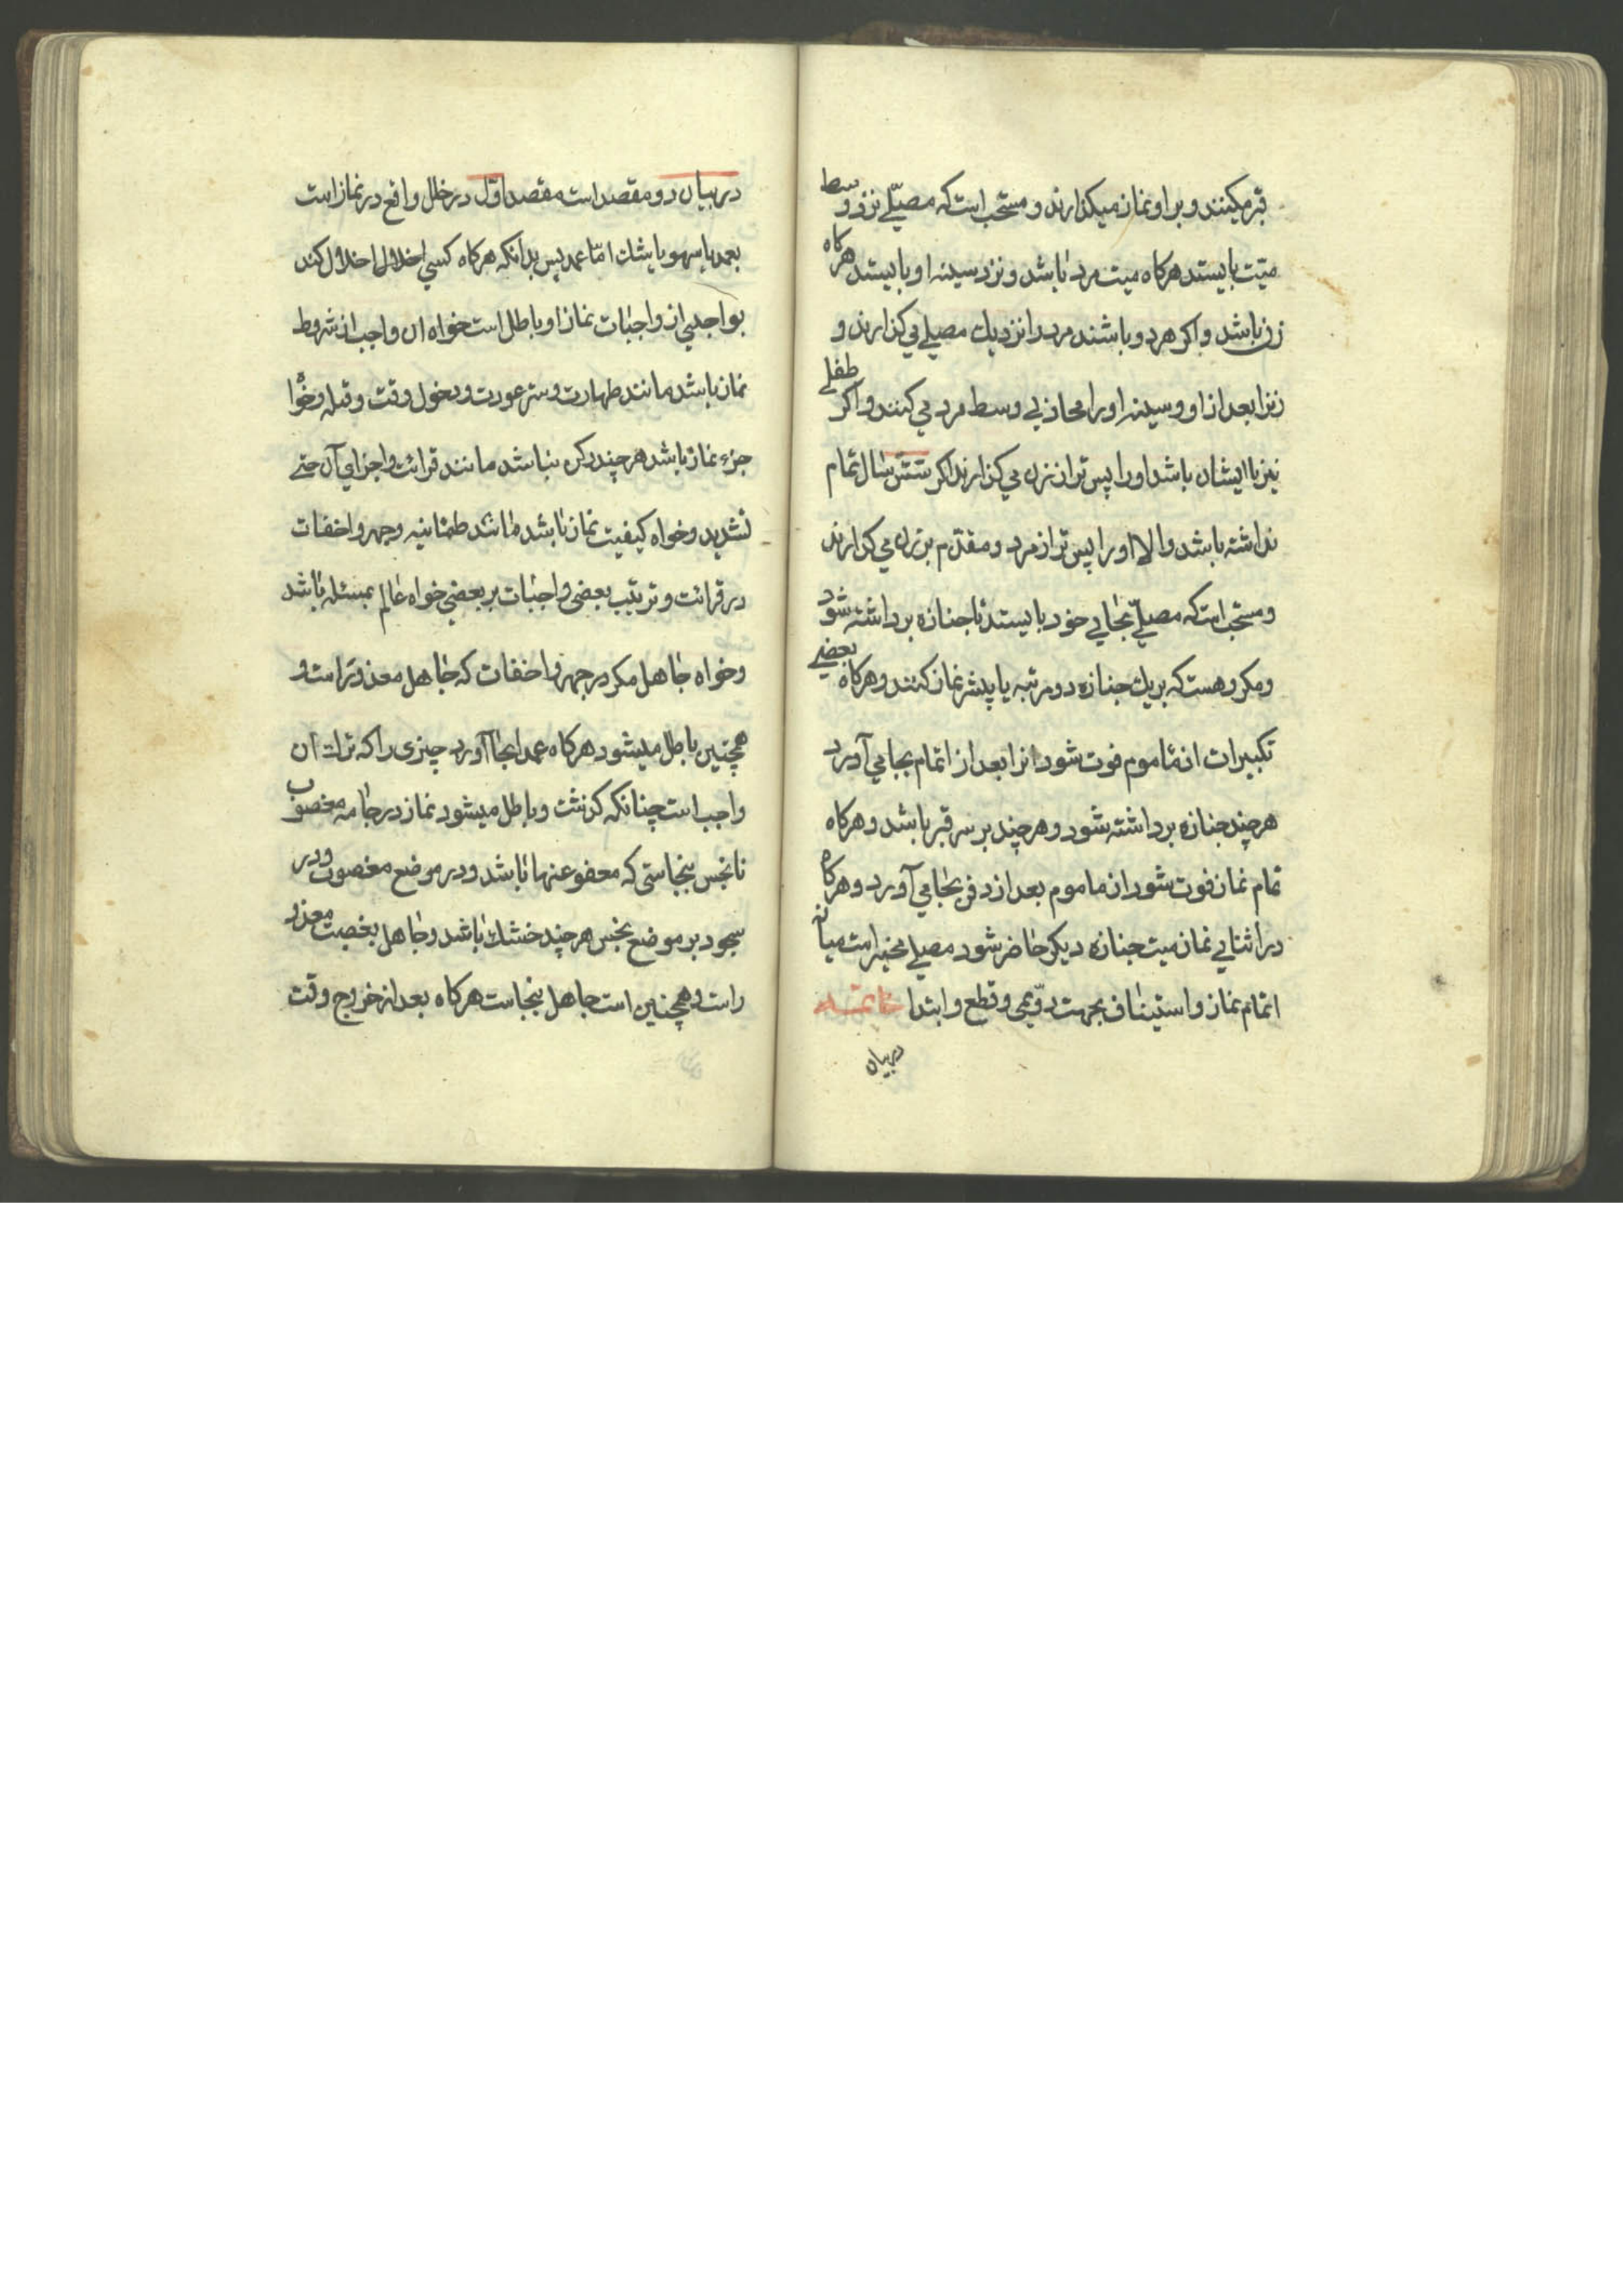 قبر میکنند و بر او نماز میکذارند و مستحب است که مصلّے نزد وسط
میّت بایستد هرکاه میت مرد باشد و نزد سینه او بایستد هرکاه
زن باشد و اکر هر دو باشند مرد را نزدیك مصلے می کذارند و
زنرا بعد از او و سینه او را محازی وسط مرد می کنند و اکر طفلے
نیز با ایشان باشد او را پس تر از زن می کذارند اکر شش سال تمام
نداشته باشد و الا او را پس تر از مرد و مقدم بر زن می کذارند
و مستحب است که مصلّے بجای خود بایستد تا جنازه برداشته شود
و مکروهست که بریك جنازه دو مرتبه یا پیشتر نماز کنند و هرکاه بعضے
تکبیرات از ماموم فوت شود انرا بعد از اتمام بجا می آورد
هر چند جنازه برداشته شود و هر چند بر سر قبر باشد و هرکاه
تمام نماز فوت شود از ماموم بعد از دفن بجا می آورد و هرکاه
در اثنای نماز میت جنازه دیکر حاضر شود مصلے مخیر است میانه
اتمام نماز و استیناف بجهت دوّیمی و قطع و ابتدا خاتمه
در بیان
در بیان دو مقصد است مقصد اوّل در خلل واقع در نماز است
بعمد یا سهو یا بشك امّا عمد پس بدانکه هرکاه کسی اخلال اخلال کند
بواجبی از واجبات نماز او باطل است خواه ان واجب از شروط
نماز باشد مانند طهارت و ستر عورت و دخول وقت و قبله و خوا
جزء نماز باشد هر چند رکن نباشد مانند قرائت و اجزای آن حتے
تشدید و خواه کیفیت نماز باشد مانند طمئانینه و جهر و اخفات
در قرائت و ترتیب بعضی واجبات بر بعضی خواه عالم بمسئله باشد
و خواه جاهل مکر در جهر و اخفات که جاهل معذور است و
همچنین باطل میشود هرکاه عمدا بجا آورد چیزی را که ترك ان
واجب است چنانکه کذشت و باطل میشود نماز در جامه مغصوب
یا نجس بنجاستی که معفو عنها نباشد و در موضع مغصوب و در
سجود بر موضع نجس هر چند خشك باشد و جاهل بغصبت معذو
راست و همچنین است جاهل بنجاست هرکاه بعد از خروج وقت